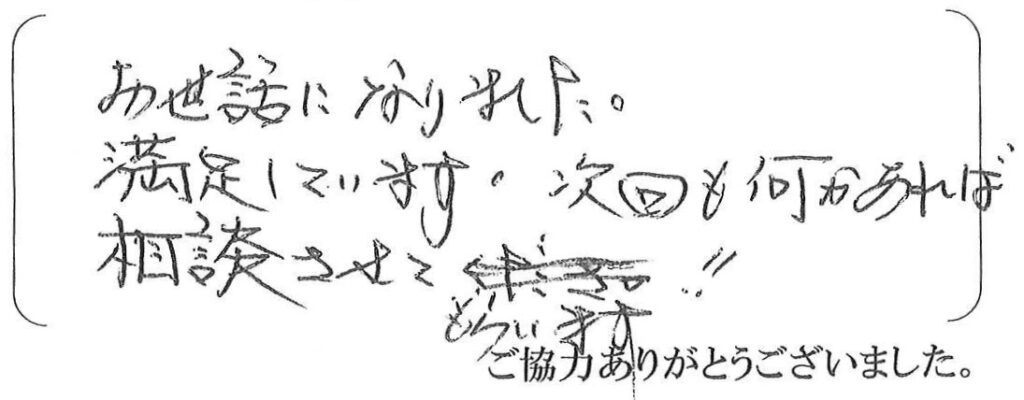 お世話になりました。
満足しています。次回も何かあれば
相談させて !!
もらいます
ご協力ありがとうございました。